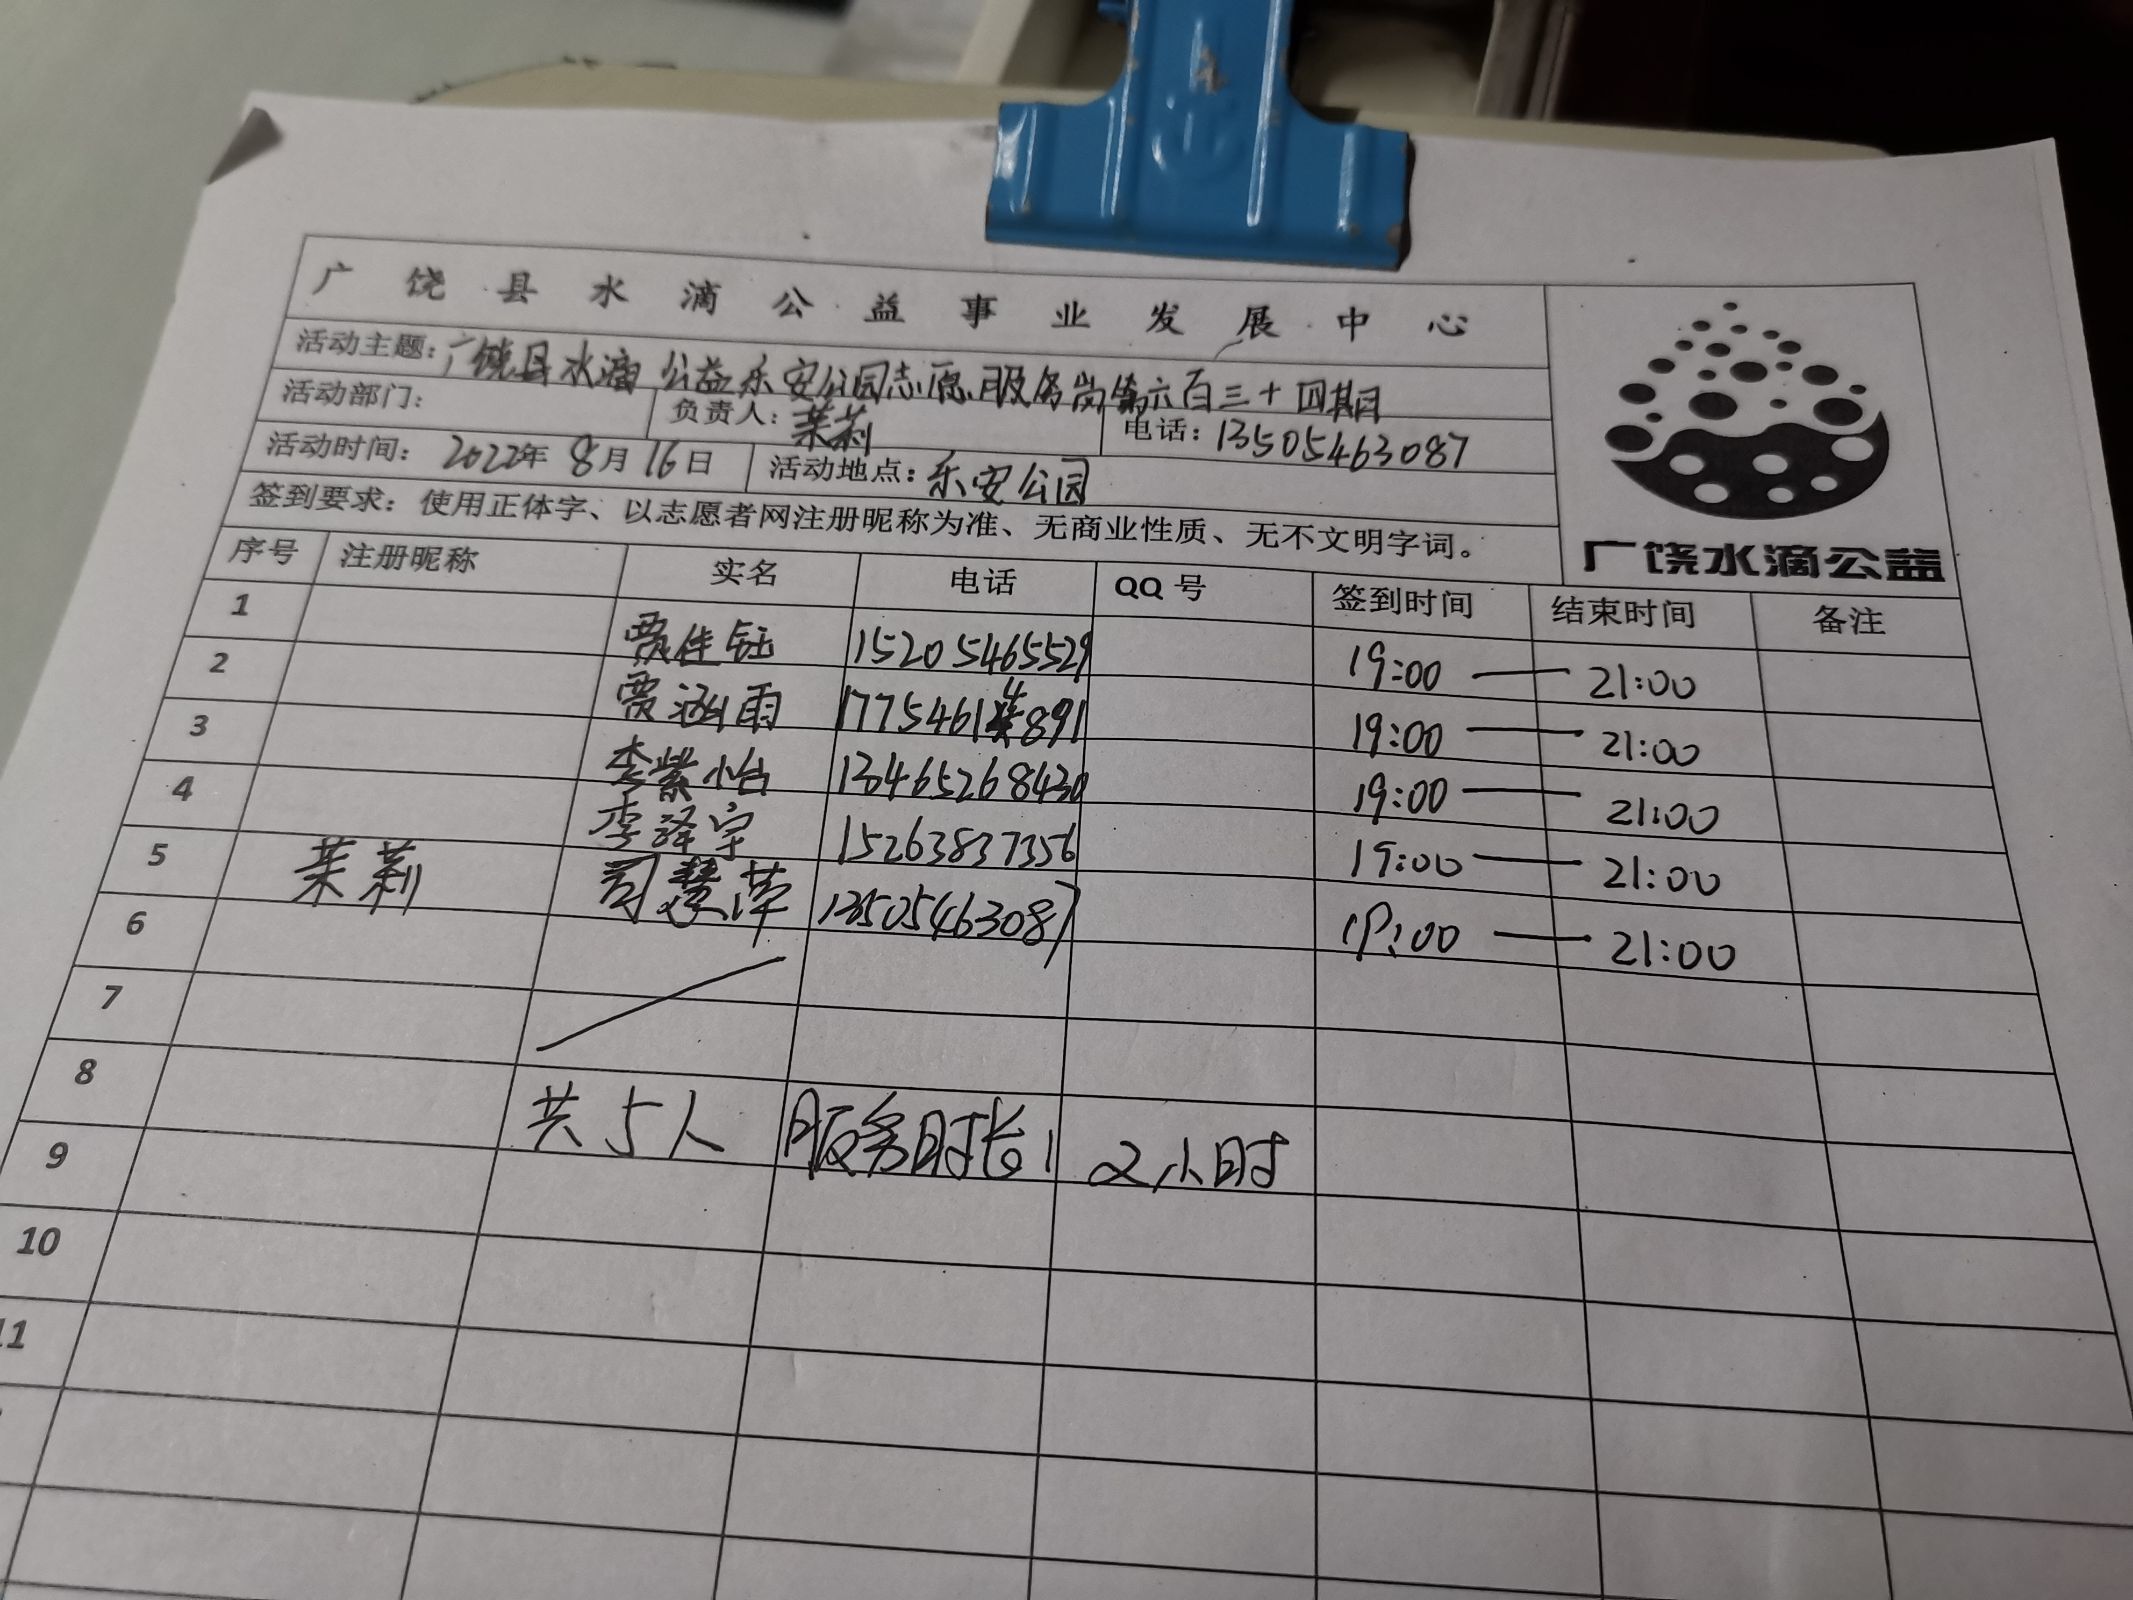 广饶县水滴公益事业发展中心
活动主题：广饶县水滴公益乐安公园志愿服务岗第六百三十四期
活动部门： 负责人：茉莉 电话：13505463087
活动时间：2022年8月16日 活动地点：乐安公园
签到要求：使用正体字、以志愿者网注册昵称为准、无商业性质、无不文明字词。
广饶水滴公益
序号 注册昵称 实名 电话 QQ号 签到时间 结束时间 备注
1 贾佳钰 15205465529 19:00 — 21:00
2 贾涵雨 17754614891 19:00 — 21:00
3 李紫怡 13465268430 19:00 — 21:00
4 李泽宇 15263837356 19:00 — 21:00
5 茉莉 司慧萍 13505463087 19:00 — 21:00
6
7
8 共5人 服务时长 2小时
9
10
11